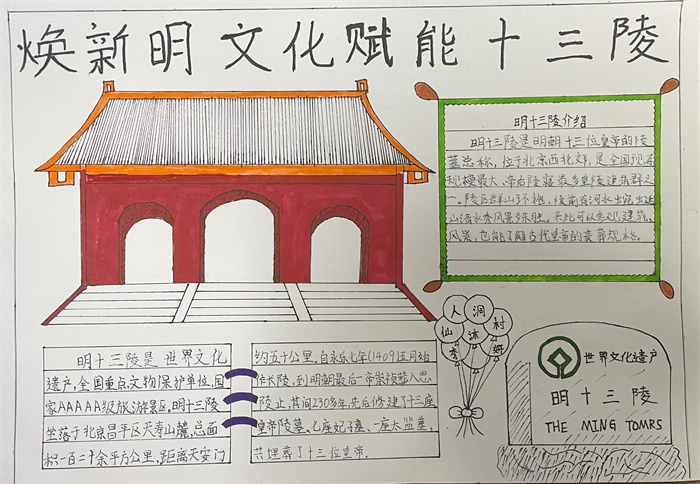 焕新明文化赋能十三陵
明十三陵介绍
明十三陵是明朝十三位皇帝的陵
墓总称,位于北京西北郊,是全国现存
规模最大、帝后陵寝最多皇陵建筑群之
一。陵区群山环抱,陵前有河水
山清水秀风景殊胜。来此可以参观建筑、
风景,也能了解古代皇帝的丧葬规格。
明十三陵是世界文化
遗产,全国重点文物保护单位,国
家AAAAA级旅游景区,明十三陵
坐落于北京昌平区天寿山麓,总面
积一百二十余平方公里,距离天安门
约五十公里。自永乐七年(1409)五月始
作长陵,到明朝最后一帝崇祯葬入思
陵止,其间230多年,先后修建了十三座
皇帝陵墓、七座妃子墓、一座太监墓,
共埋葬了十三位皇帝。
仙人洞村
世界文化遗产
明十三陵
THE MING TOMRS